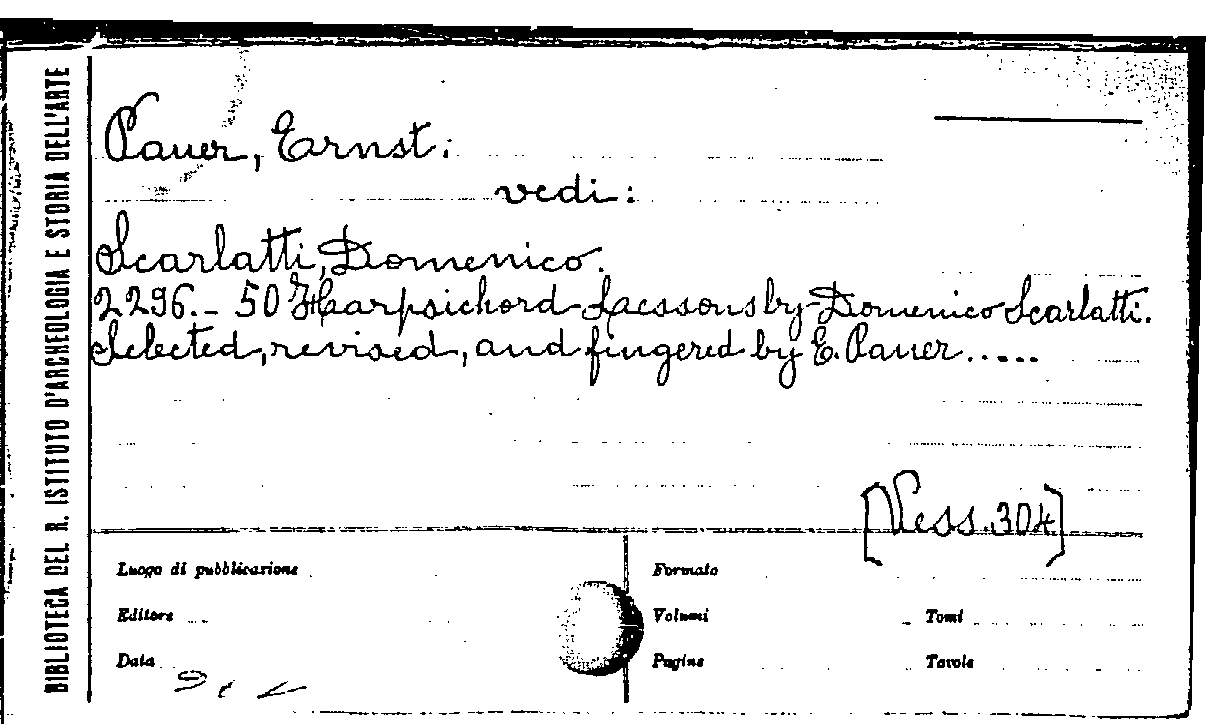 BIBLIOTECA DEL R. ISTITUTO D'ARCHEOLOGIA E STORIA DELL'ARTE
Pauer, Ernst.
vedi:
Scarlatti, Domenico.
2296.- 50 Harpsichord-Laessons by Domenico Scarlatti.
Selected, revised, and fingered by E. Pauer.....
[Vess. 304]
Luogo di pubblicazione
Formato
Editore
Volumi
Tomi
Data
Pagine
Tavole